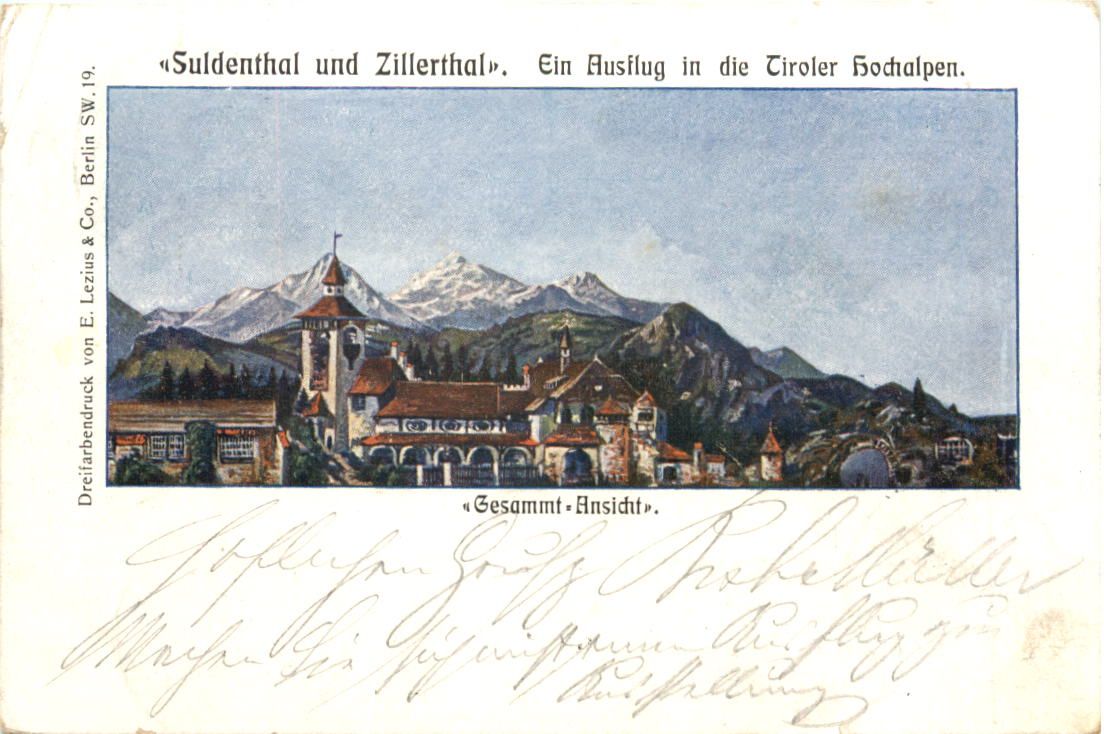 «Suldenthal und Zillerthal». Ein Ausflug in die Tiroler Hochalpen.
Dreifarbendruck von E. Lezius & Co., Berlin SW. 19.
«Gesammt-Ansicht».
Höflichen Gruß Müller
Machen Sie Ausflug zur
Ausstellung